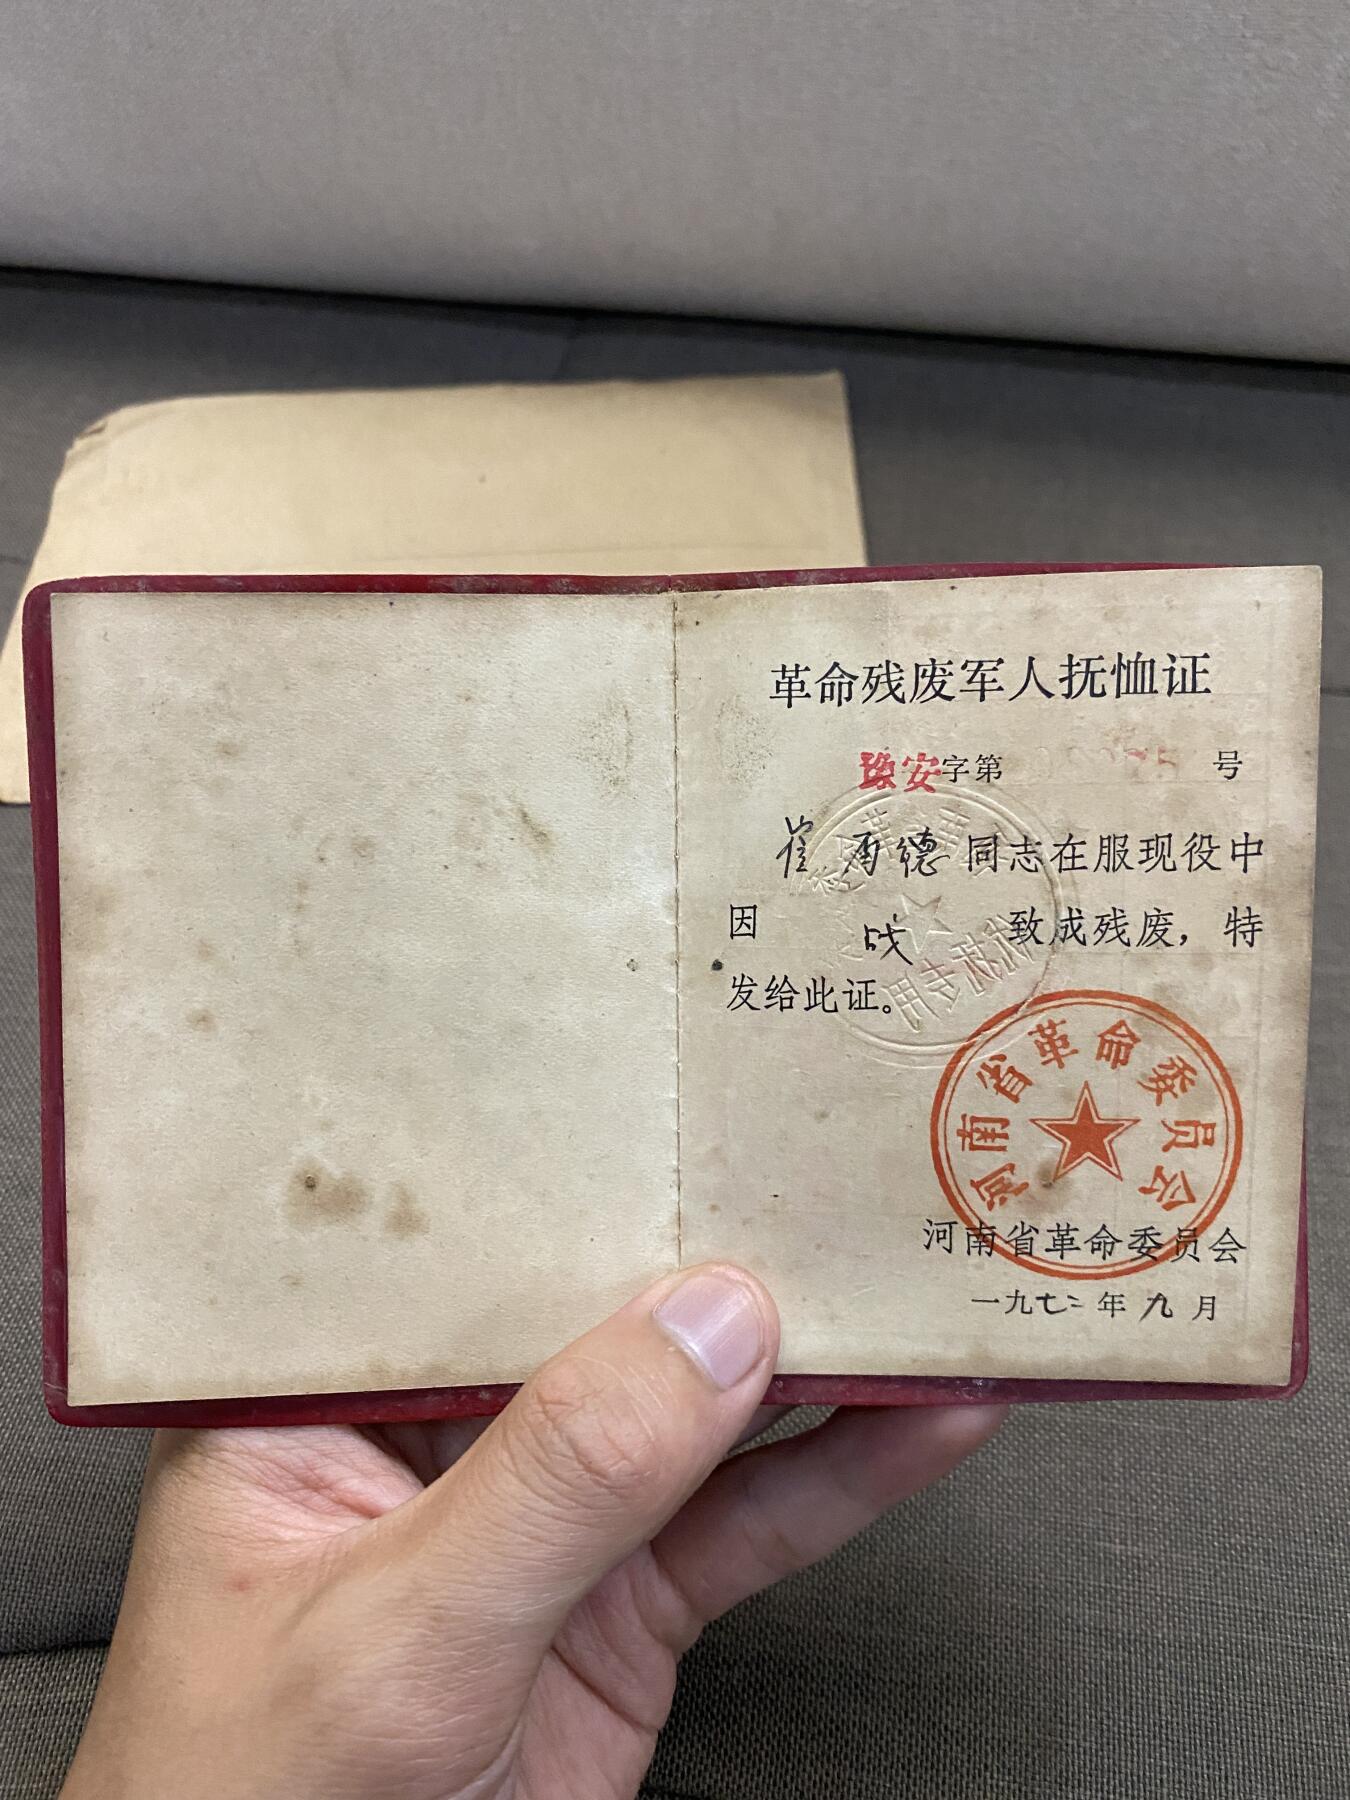 革命残废军人抚恤证
豫安字第 号
崔 德 同志在服现役中
因 战 致成残废，特
发给此证。
河南省革命委员会
河南省革命委员会
一九七二年九月